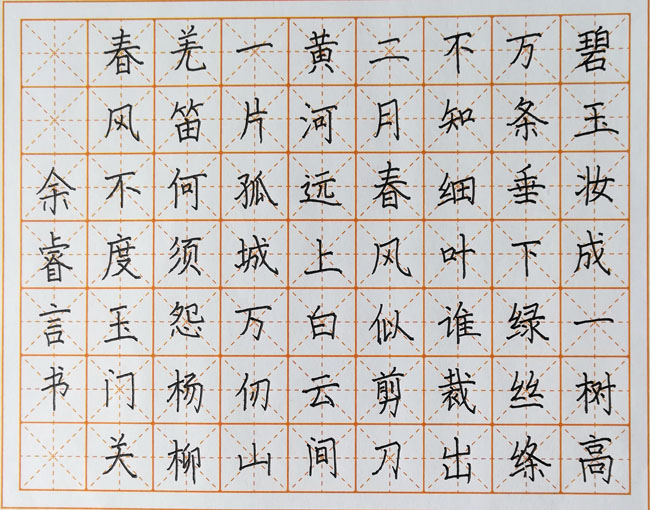 碧玉妆成一树高
万条垂下绿丝绦
不知细叶谁裁出
二月春风似剪刀
黄河远上白云间
一片孤城万仞山
羌笛何须怨杨柳
春风不度玉门关
余睿言书